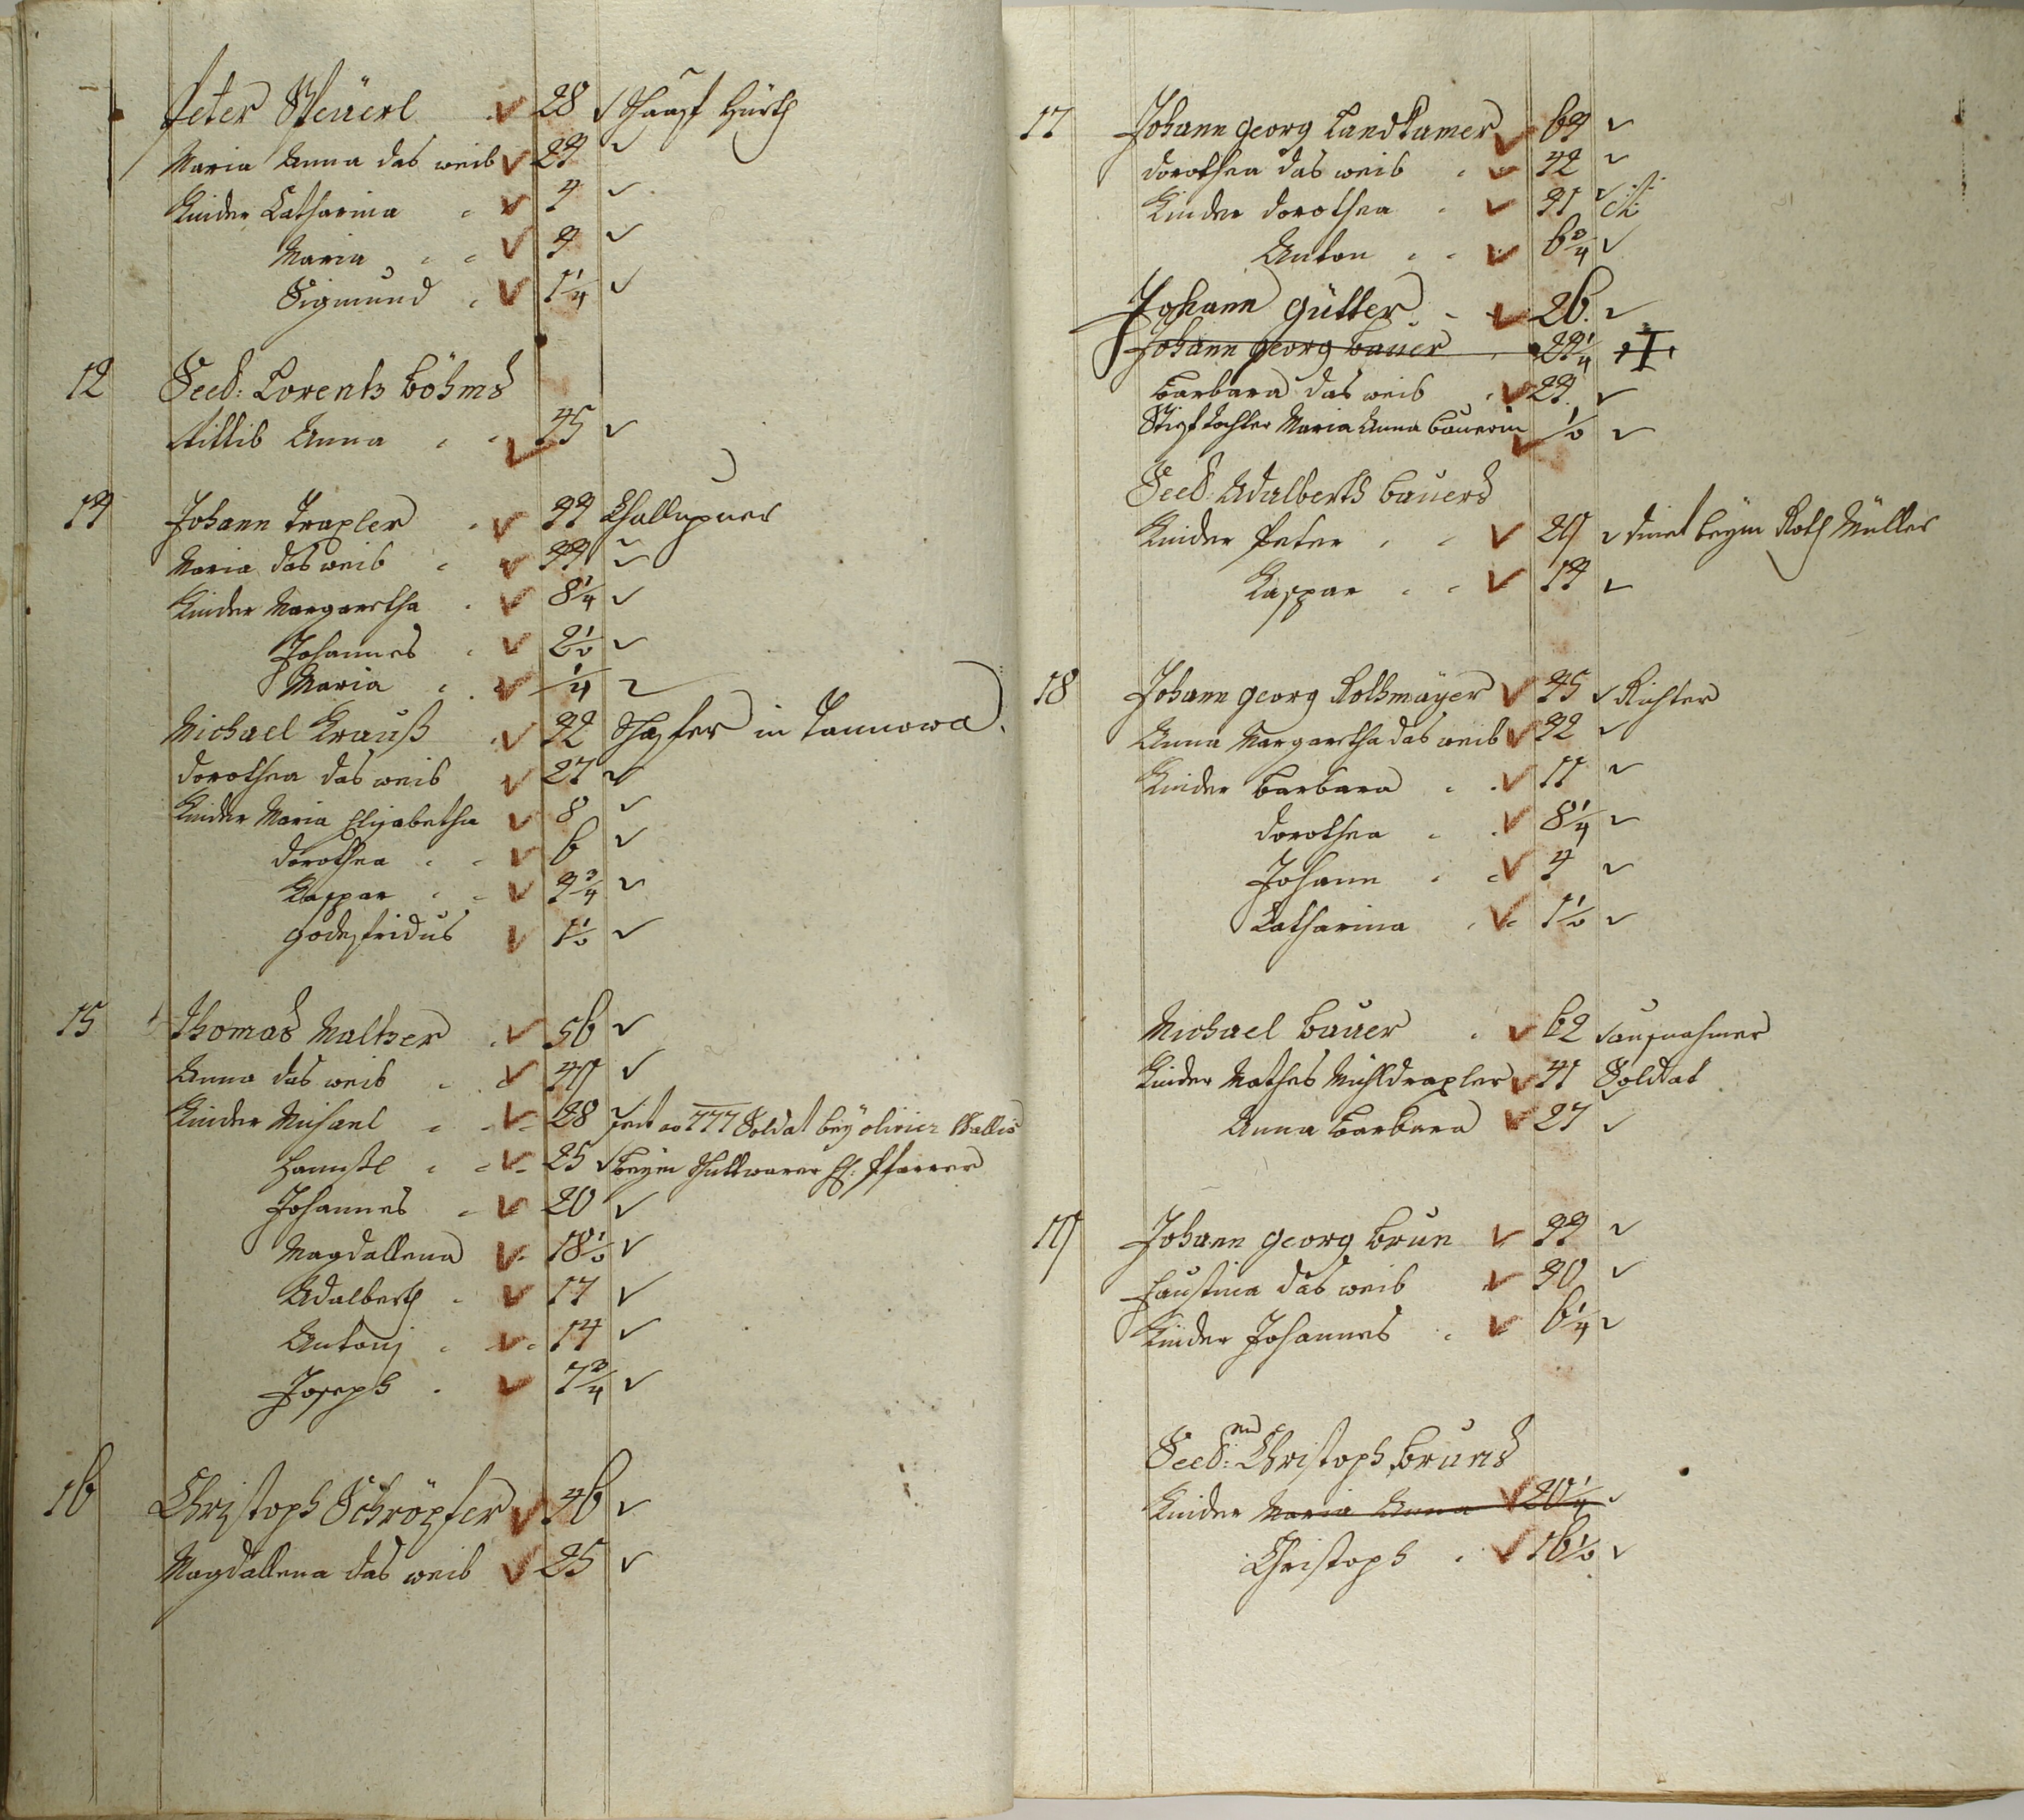 Peter Steüerl 28 Schaaf Hürth
Maria Anna das weib 23
Kinder Catharina 4
Maria 3
Sigmund 1 1/4
12 Seel: Lorentz Böhms
Wittib Anna 45
13 Johann Traxler 34 Challupner
Maria das weib 33
Kinder Margaretha 8 1/4
Johannes 2 1/2
Maria 1/4
Michael Krauß 32 Schafer in Tannowa
Dorothea das weib 27
Kinder Maria Elisabetha 8
Dorothea 6
Kaspar 3 3/4
Godefridus 1 1/2
15 Thomas Maltzer 56
Anna das weib 49
Kinder Michael 28 seit ao 777 Soldat bey olivier Wallis
25 beym H: Pfarrer
Johannes 20
Magdallena 18 1/2
Adalberth 17
Antonj 14
Joseph 7 3/4
16 Christoph Schröpfer 46
Magdallena das weib 25
17 Johann Georg Landkamer 63
Dorothea das weib 42
Kinder Dorothea 31
Anton 6 3/4
Johann Gütter 26
Johann Georg Bauer 22 1/4
Barbara das weib 23
Stieftochter Maria Anna Bauerin 1/2
Seel: Adalberth Bauers
Kinder Peter 29 dinet beym Roth Müller
Kaspar 13
18 Johann Georg Rothmayer 35 Richter
Anna Margaretha das weib 32
Kinder Barbara 11
Dorothea 8 1/4
Johann 4
Catharina 1 1/2
Michael Bauer 62 ausnahmer
Kinder Mathes Mühldraxler 41 Soldat
Anna Barbara 27
19 Johann Georg Brun 33
Faustina das weib 30
Kinder Johannes 6 1/4
Seel: Christoph Bruns
Kinder Maria Anna 20 1/4
Christoph 16 1/2